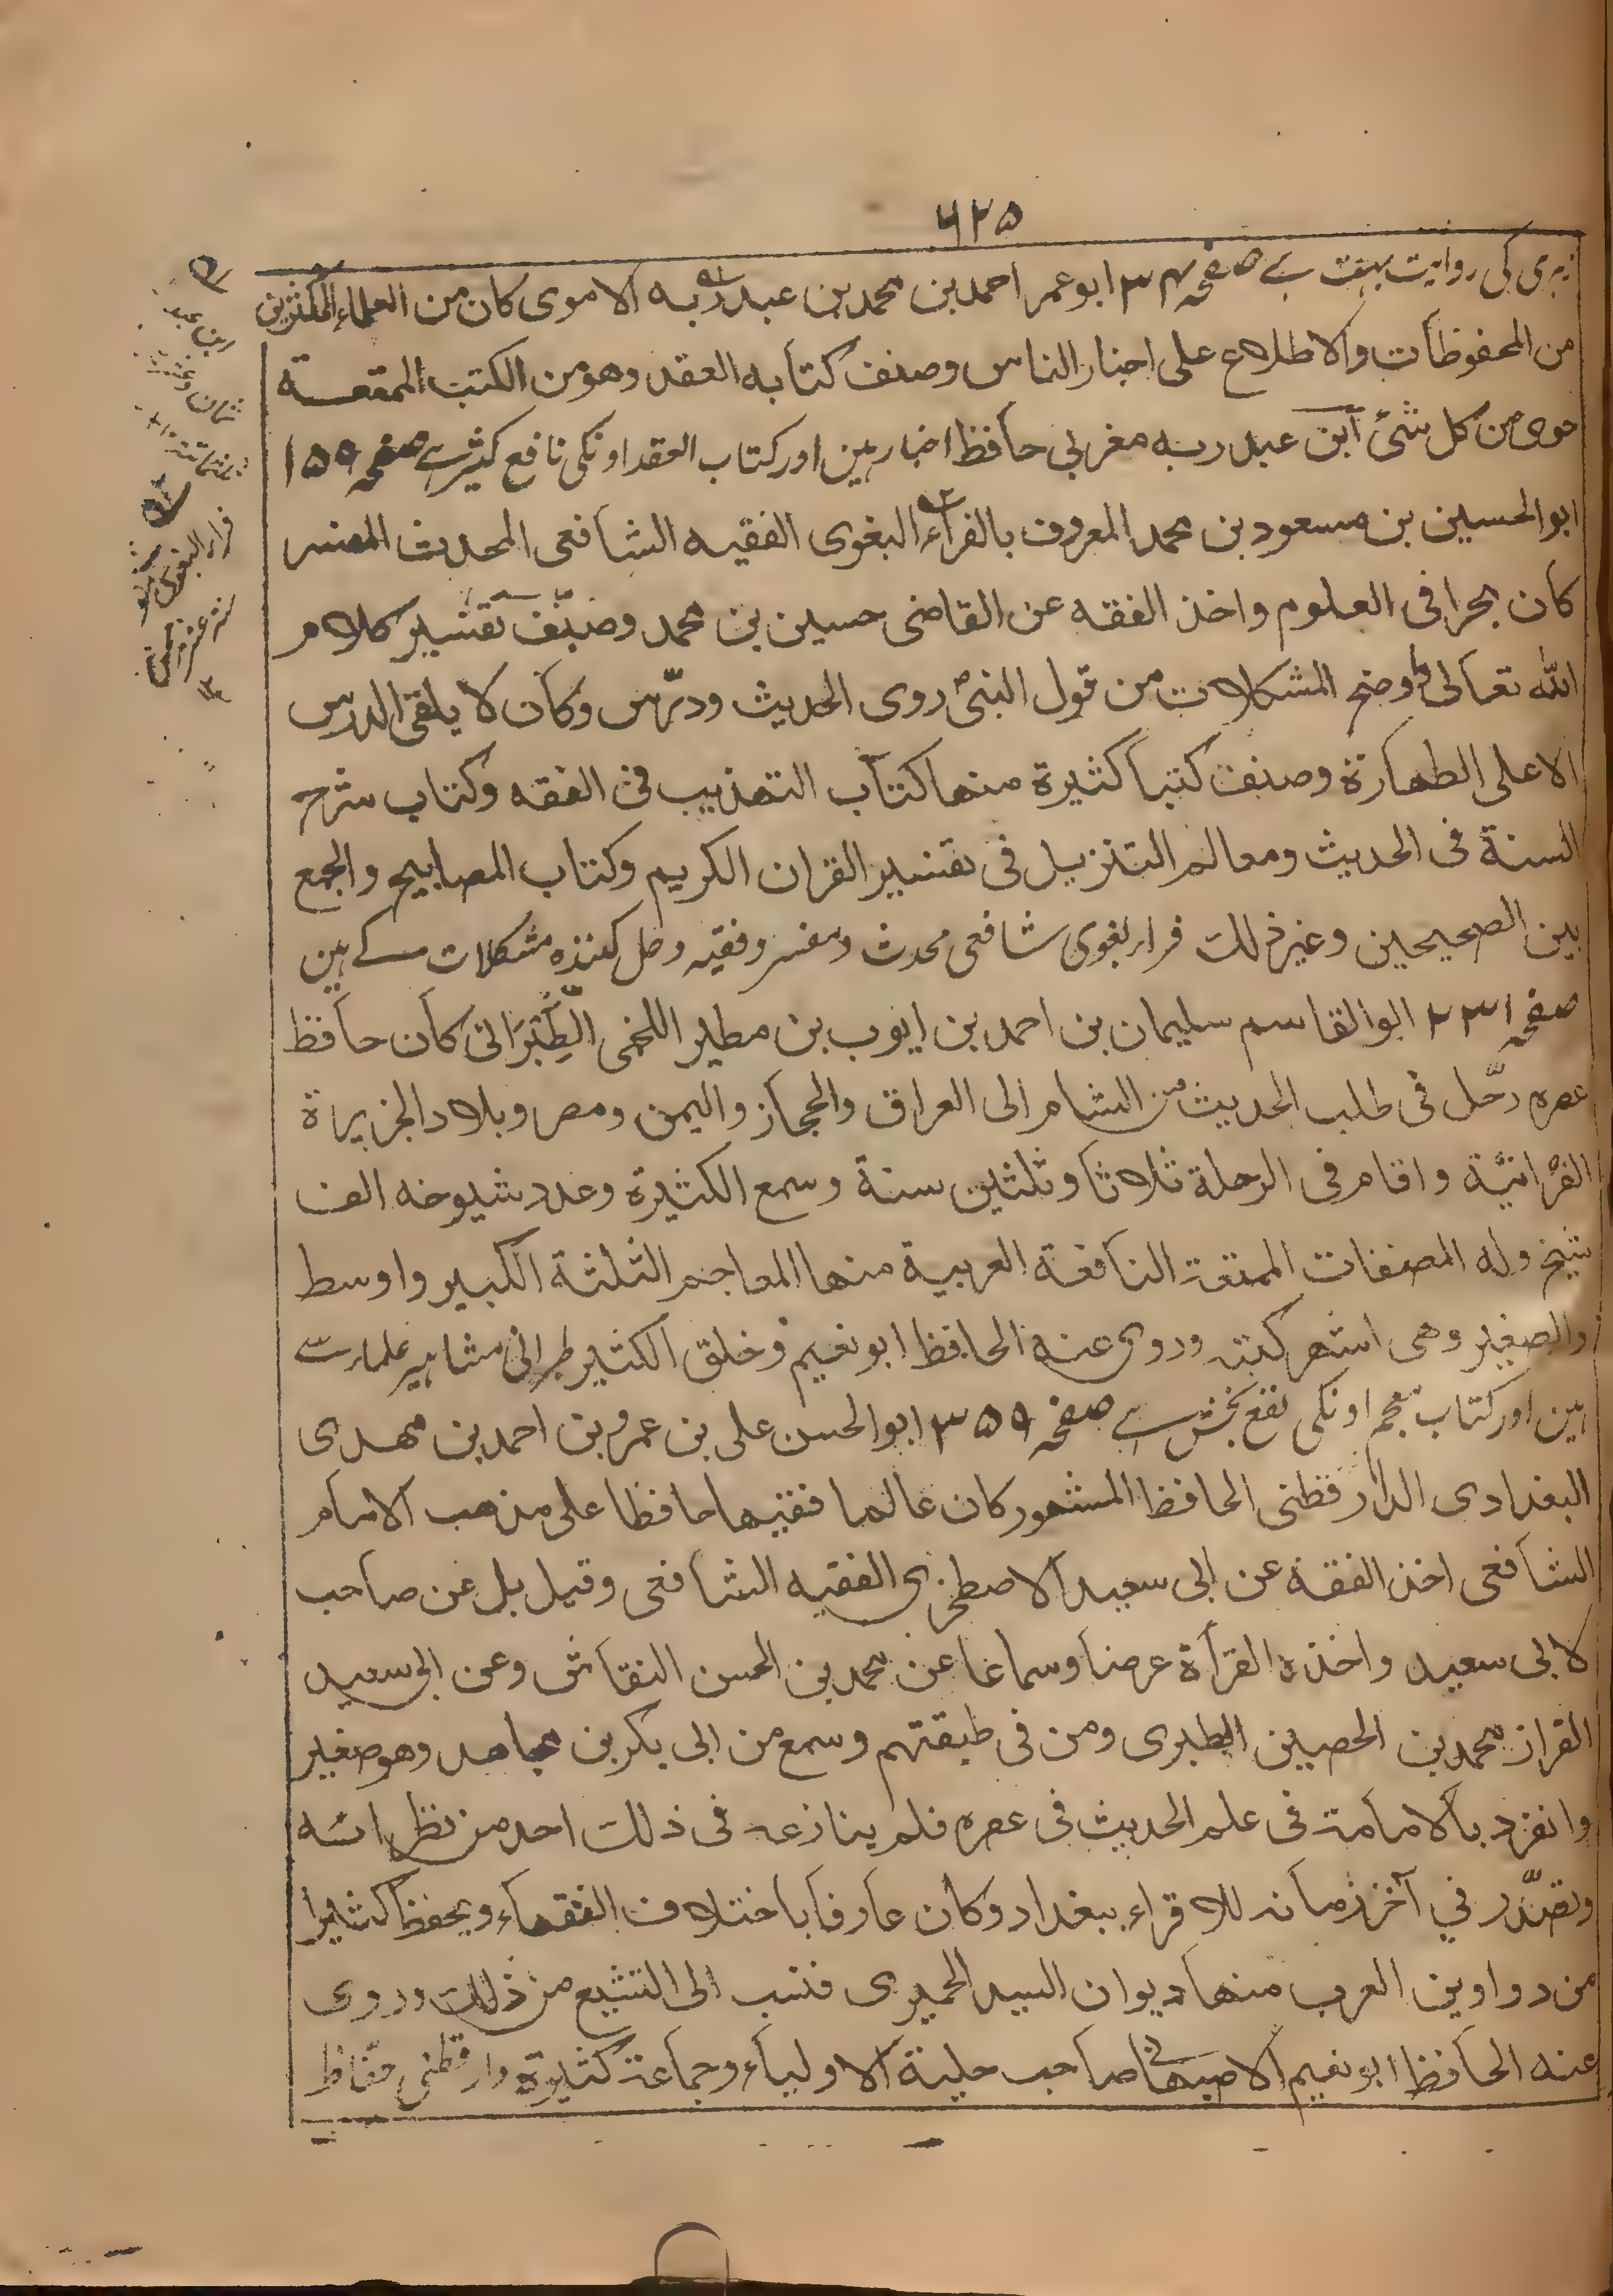 ٦٢٥
زہری کی روایت بہت ہے صفحہ ٣٤ ابو عمر احمد بن محمد بن عبد ربه الاموی كان من العلماء المكثرين
من المحفوظات والاطلاع علی اخبار الناس وصنف كتابه العقد وهو من الكتب الممتعة
حوی من كل شئ ابن عبد ربه مغربی حافظ اخبار ہین اور کتاب العقد اونکی نافع کثیر ہے صفحہ ١٥٩
ابو الحسين بن مسعود بن محمد المعروف بالفراء البغوی الفقيه الشافعی المحدث المفسر
كان بحرا فی العلوم واخذ الفقه عن القاضی حسين بن محمد وصنّف تفسير كلام
الله تعالی واوضح المشكلات من قول النبیؐ روی الحديث ودرّس وكان لا يلقی الدرس
الا علی الطهارة وصنف كتبا كثيرة منها كتاب التهذيب فی الفقه وكتاب شرح
السنة فی الحديث ومعالم التنزيل فی تفسير القران الكريم وكتاب المصابيح والجمع
بين الصحيحين وغير ذلك فراء بغوی شافعی محدث ومفسر وفقیہ وحل کنندہ مشکلات کے ہین
صفحہ ٢٣١ ابو القاسم سليمان بن احمد بن ايوب بن مطير اللخمی الطَّبَرَانی كان حافظ
عصره رحّل فی طلب الحديث من الشام الی العراق والحجاز واليمن ومصر وبلاد الجزيرة
الفراتيّة واقام فی الرحلة ثلاثا وثلثين سنة وسمع الكثيرة وعدد شيوخه الف
شيخ وله المصنفات الممتعة النافعة العربية منها المعاجم الثلثة الكبير واوسط
والصغير وهی اشهر كتبه وروی عنه الحافظ ابو نعيم وخلق الكثير طبرانی مشاہیر علماء سے
ہین اور کتاب معجم اونکی نفع بخش ہے صفحہ ٣٥٩ ابو الحسن علی بن عمرو بن احمد بن مهدی
البغدادی الدار قطنی الحافظ المشهور كان عالما فقيها حافظا علی مذهب الامام
الشافعی اخذ الفقه عن ابی سعيد الاصطخری الفقيه الشافعی وقيل بل عن صاحب
لابی سعيد واخذه القرأة عرضا وسماعا عن محمد بن الحسن النقاش وعن ابی سعيد
القزاز محمد بن الحصين الطبری ومن فی طبقتهم وسمع من ابی بكر بن مجاهد وهو صغير
وانفرد بالامامة فی علم الحديث فی عصره فلم ينازعه فی ذلك احد من نظرائه
وتصدّر في آخر زمانه للاقراء ببغداد وكان عارفا باختلاف الفقهاء ويحفظ كثيرا
من دواوين العرب منها ديوان السيد الحميری فنسب الی التشيع من ذلك وروی
عنه الحافظ ابو نعيم الاصبهانی صاحب حلية الاولياء وجماعة كثيرة دارقطنی حفاظ